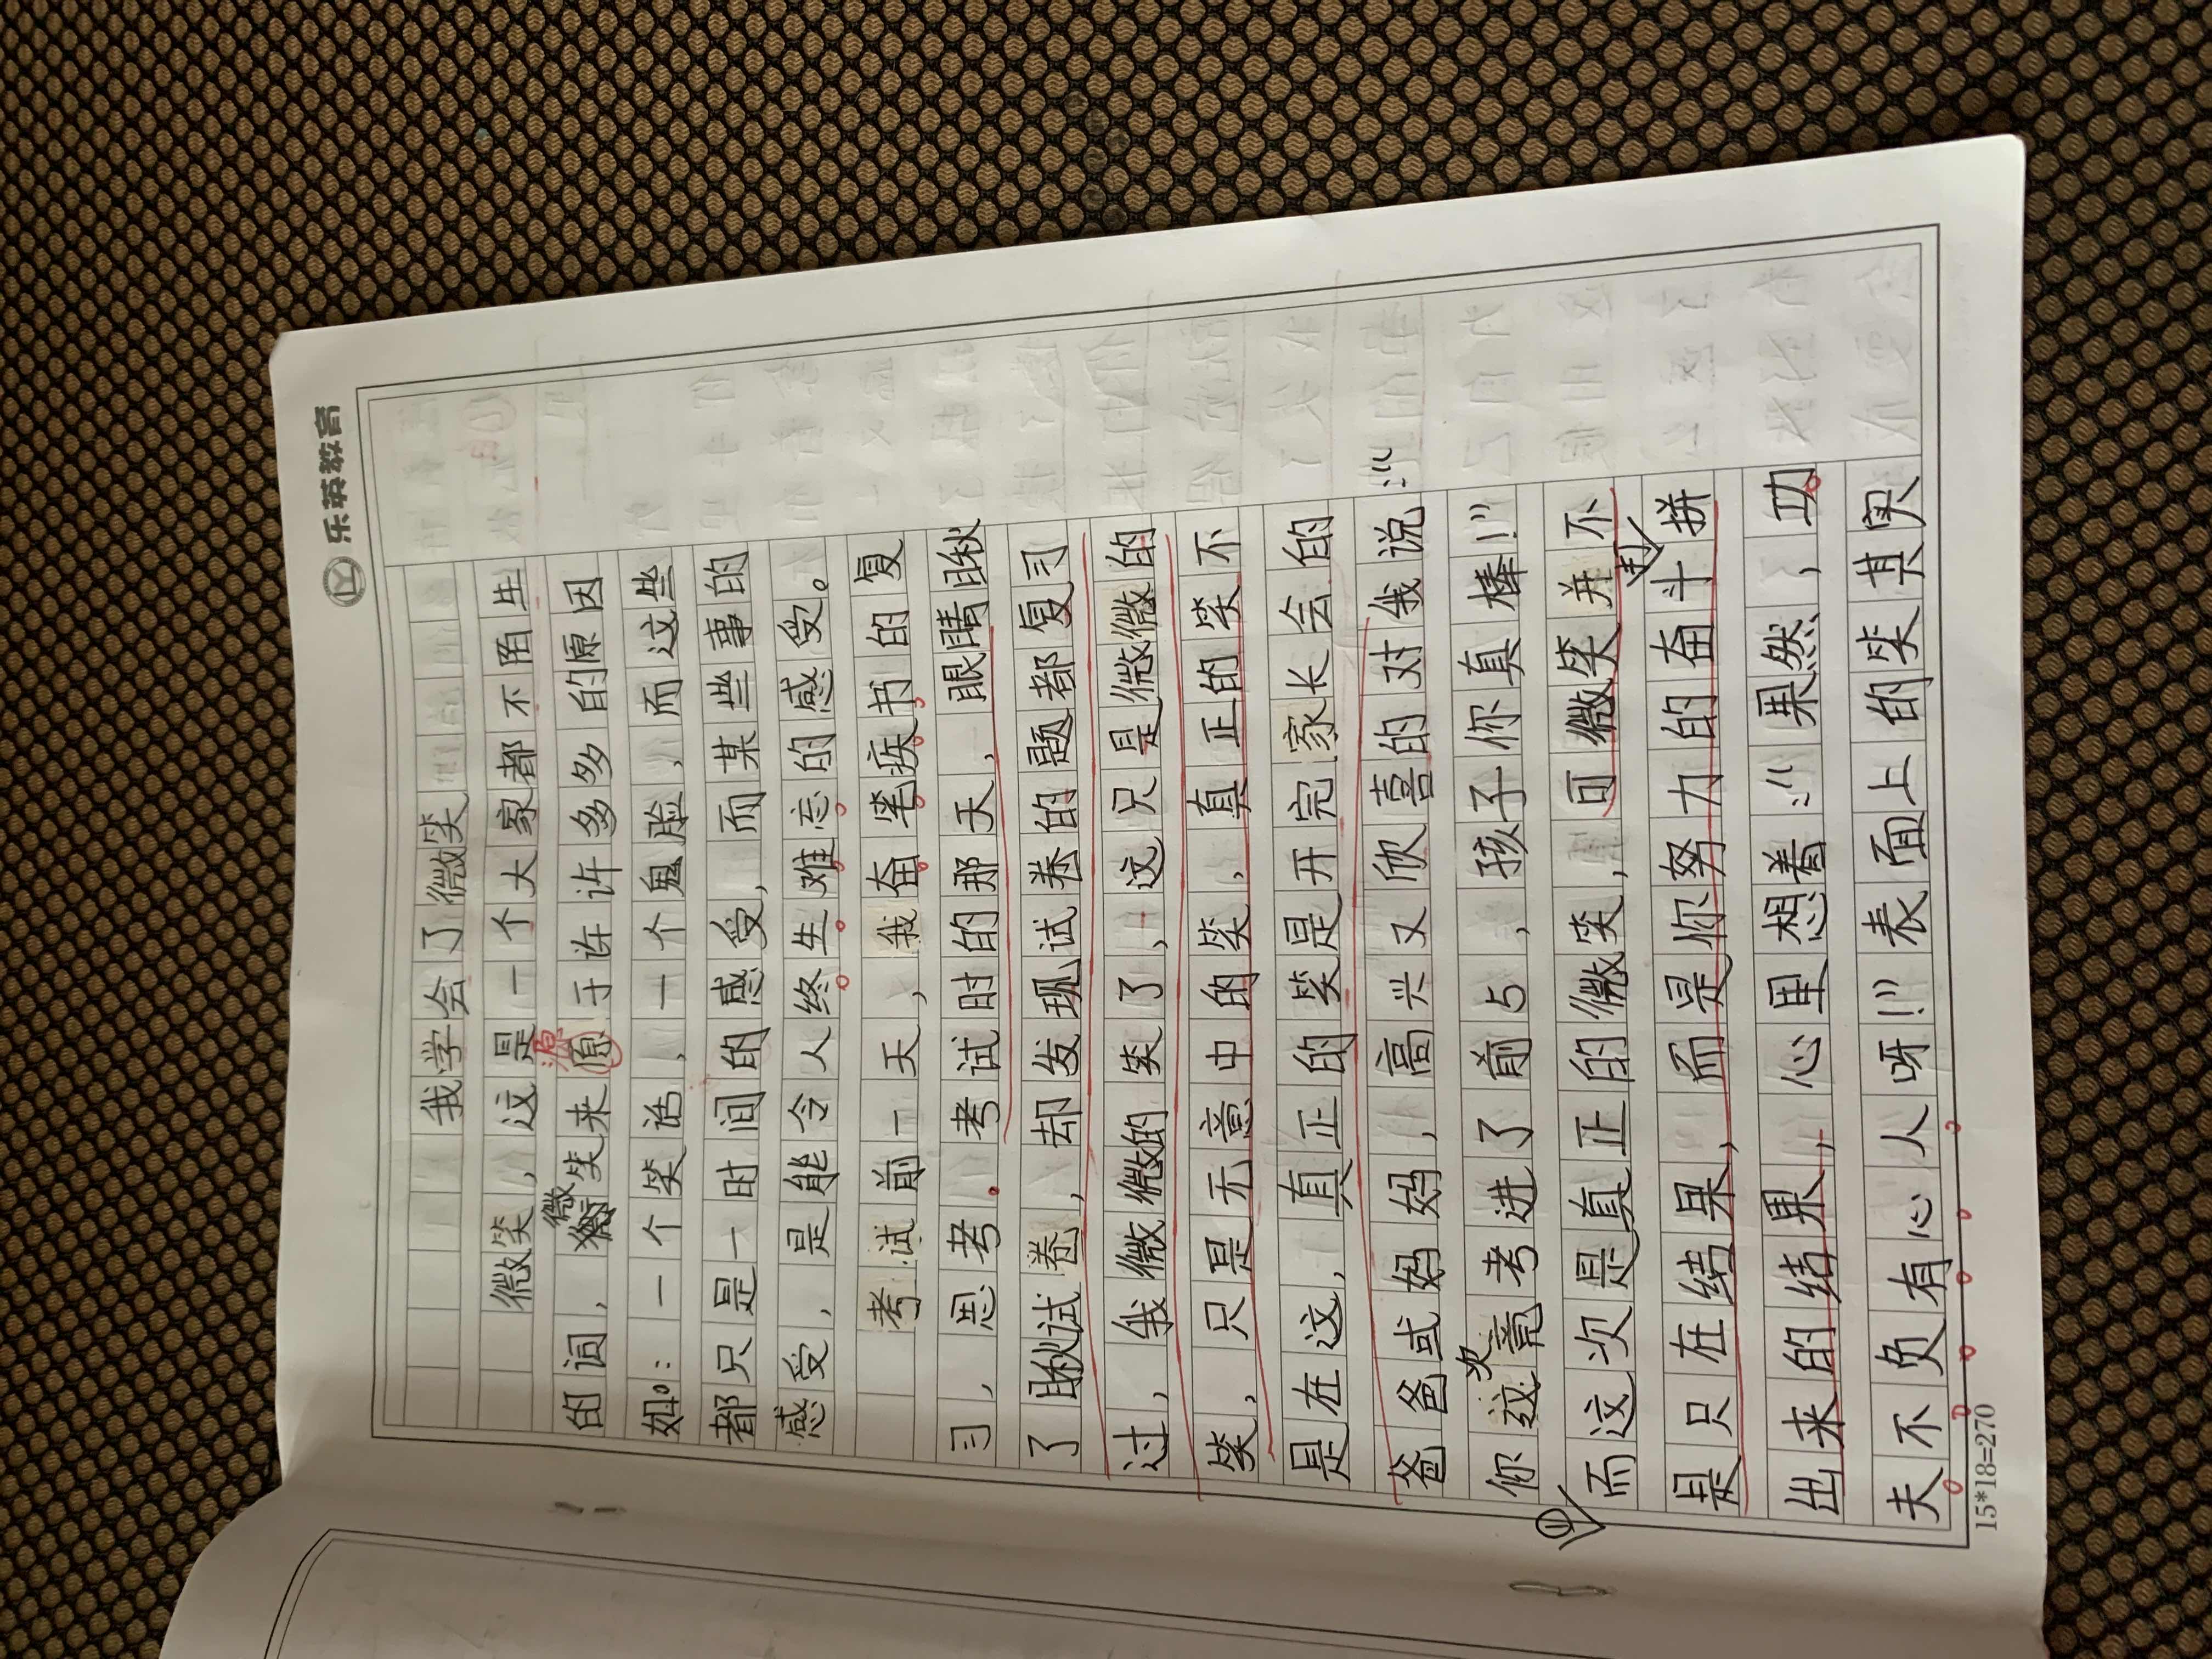 乐英教育
我学会了微笑
微笑，这是一个大家都不陌生
的词，微笑来愿于许许多多的原因
源
如：一个笑话，一个鬼脸，而这些
都只是一时间的感受，而某些事的
感受，是能令人终生难忘的感受。
考试前一天，我奋笔疾书的复
习，思考。考试时的那天，眼睛瞅
了瞅试卷，却发现试卷的题都复习
过，我微微的笑了，这只是微微的
笑，只是无意中的笑，真正的笑不
是在这，真正的笑是开完家长会的
爸爸或妈妈，高兴又欣喜的对我说：“
你这次竟考进了前5，孩子你真棒！”
而这次是真正的微笑，可微笑并不
是只在结果，而是你努力的奋斗拼
出来的结果，心里想着：“果然，功
夫不负有心人呀！”表面上的笑其实
15*18=270